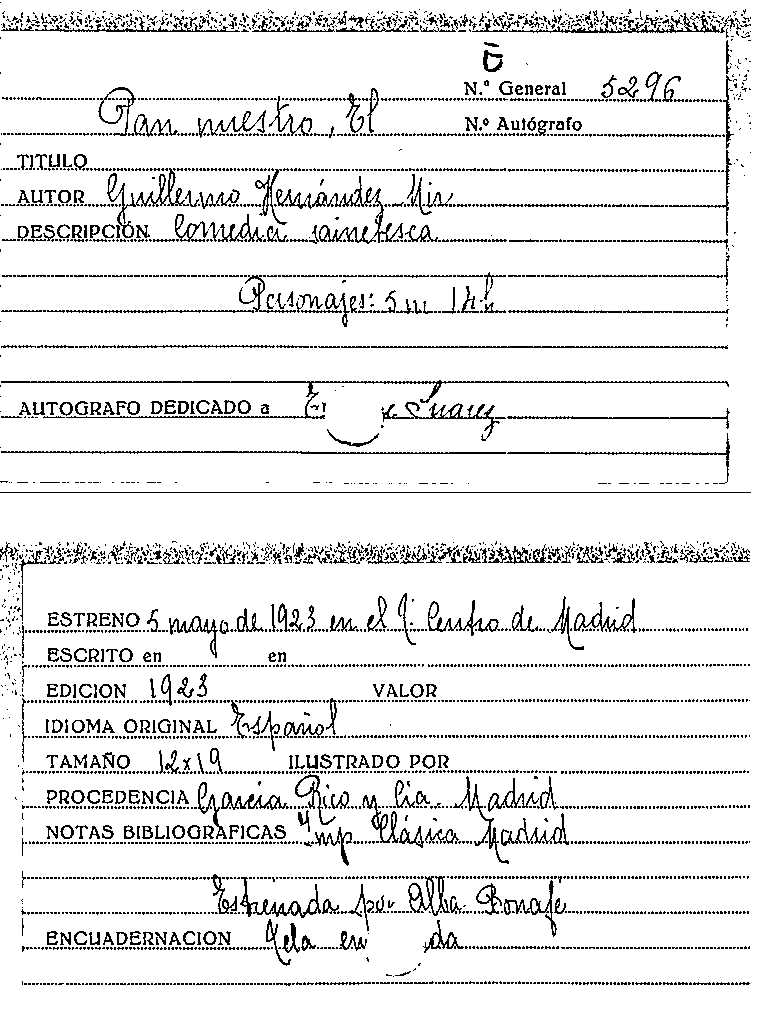 N.º General 5296
Pan nuestro, El
N.º Autógrafo
TITULO
AUTOR Guillermo Hernández Mir
DESCRIPCIÓN Comedia sainetesca
Personajes: 5 m 14 h
AUTOGRAFO DEDICADO a Suarez
ESTRENO 5 mayo de 1923 en el T. Centro de Madrid
ESCRITO en en
EDICION 1923 VALOR
IDIOMA ORIGINAL Español
TAMAÑO 12x19 ILUSTRADO POR
PROCEDENCIA Garcia Rico y Cia. Madrid
NOTAS BIBLIOGRAFICAS Imp Clásica Madrid
Estrenada por Alba-Bonafé
ENCUADERNACION Tela